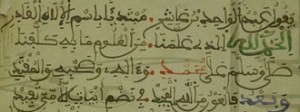 يقول عبد الواحد بن عاشر مبتدئا باسم الإله القادر
الحمد لله الذي علمنا من العلوم ما به كلفنا
صلى وسلم على محمد وآله وصحبه والمقتدي
وبعد فالعون من الله المجيد في نظم أبيات